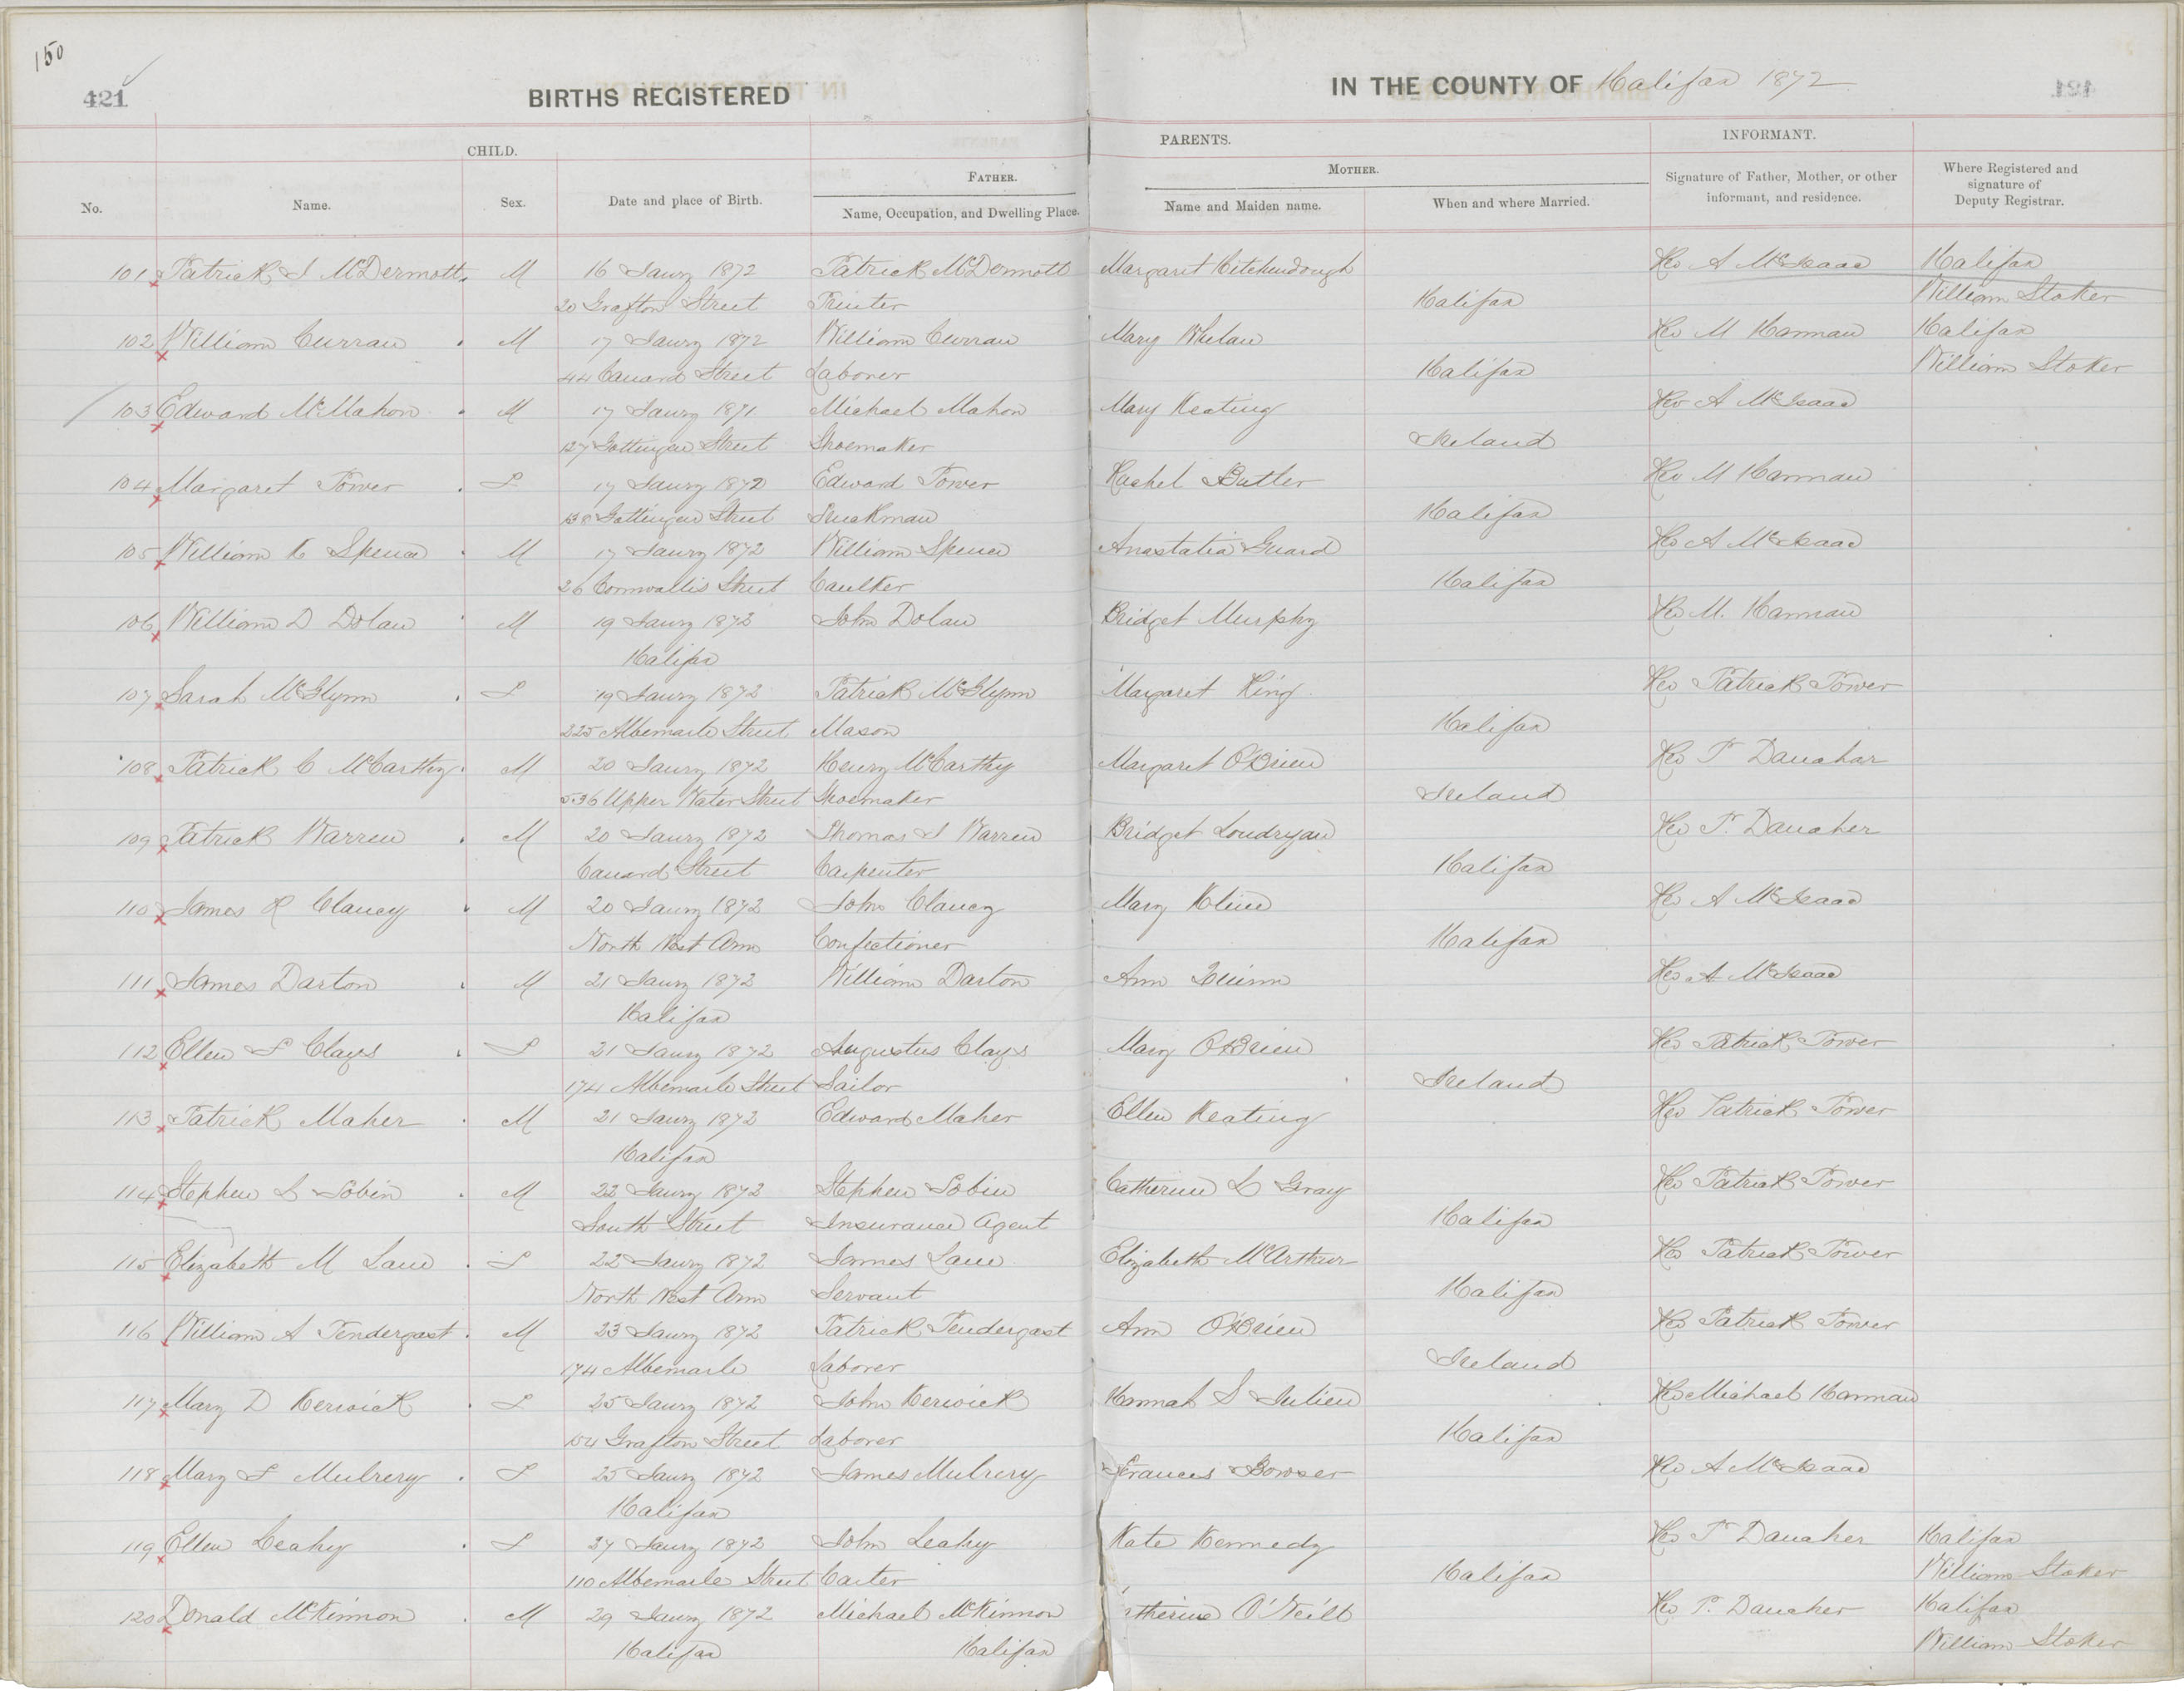 150
421
BIRTHS REGISTERED
IN THE COUNTY OF Halifax 1872
CHILD.
PARENTS.
INFORMANT.
FATHER.
MOTHER.
No.
Name.
Sex.
Date and place of Birth.
Name, Occupation, and Dwelling Place.
Name and Maiden name.
When and where Married.
Signature of Father, Mother, or other informant, and residence.
Where Registered and signature of Deputy Registrar.
101 Patrick J McDermott M 16 Jaury 1872 Patrick McDermott Margaret Hitchendough Rev A McIsaac Halifax
20 Grafton Street Printer Halifax William Stoker
102 William Curran M 17 Jaury 1872 William Curran Mary Whelan Rev M Hannan Halifax
44 Cunard Street Laborer Halifax William Stoker
103 Edward McMahon M 17 Jaury 1871 Michael Mahon Mary Keating Rev A McIsaac
127 Gottingen Street Shoemaker Ireland
104 Margaret Power F 17 Jaury 1872 Edward Power Rachel Butler Rev M Hannan
138 Gottingen Street Truckman Halifax
105 William H Spence M 17 Jaury 1872 William Spence Anastatia Guard Rev A McIsaac
26 Cornwallis Street Caulker Halifax
106 William D Dolan M 19 Jaury 1872 John Dolan Bridget Murphy Rev M. Hannan
Halifax
107 Sarah McGlynn F 19 Jaury 1872 Patrick McGlynn Margaret King Rev Patrick Power
225 Albemarle Street Mason Halifax
108 Patrick C McCarthy M 20 Jaury 1872 Henry McCarthy Margaret O'Brien Rev P Danahar
536 Upper Water Street Shoemaker Ireland
109 Patrick Warren M 20 Jaury 1872 Thomas J Warren Bridget Londryan Rev P. Danaher
Cunard Street Carpenter Halifax
110 James R Clancy M 20 Jaury 1872 John Clancy Mary Kline Rev A McIsaac
North West Arm Confectioner Halifax
111 James Darton M 21 Jaury 1872 William Darton Ann Quinn Rev A McIsaac
Halifax
112 Ellen F Clays F 21 Jaury 1872 Augustus Clays Mary O'Brien Rev Patrick Power
174 Albemarle Street Sailor Ireland
113 Patrick Maher M 21 Jaury 1872 Edward Maher Ellen Keating Rev Patrick Power
Halifax
114 Stephen L Tobin M 22 Jaury 1872 Stephen Tobin Catherine L Gray Rev Patrick Power
South Street Insurance Agent Halifax
115 Elizabeth M Lane F 22 Jaury 1872 James Lane Elizabeth McArthur Rev Patrick Power
North West Arm Servant Halifax
116 William A Pendergast M 23 Jaury 1872 Patrick Pendergast Ann O'Brien Rev Patrick Power
174 Albemarle Laborer Ireland
117 Mary D Kerwick F 25 Jaury 1872 John Kerwick Hannah S Julien Rev Michael Hannan
154 Grafton Street Laborer Halifax
118 Mary F Mulrery F 25 Jaury 1872 James Mulrery Frances Bowser Rev A McIsaac
Halifax
119 Ellen Leahy F 27 Jaury 1872 John Leahy Kate Kennedy Rev P Danaher Halifax
110 Albemarle Street Carter Halifax William Stoker
120 Donald McKinnon M 29 Jaury 1872 Michael McKinnon therine O'Neill Rev P. Danaher Halifax
Halifax Halifax William Stoker